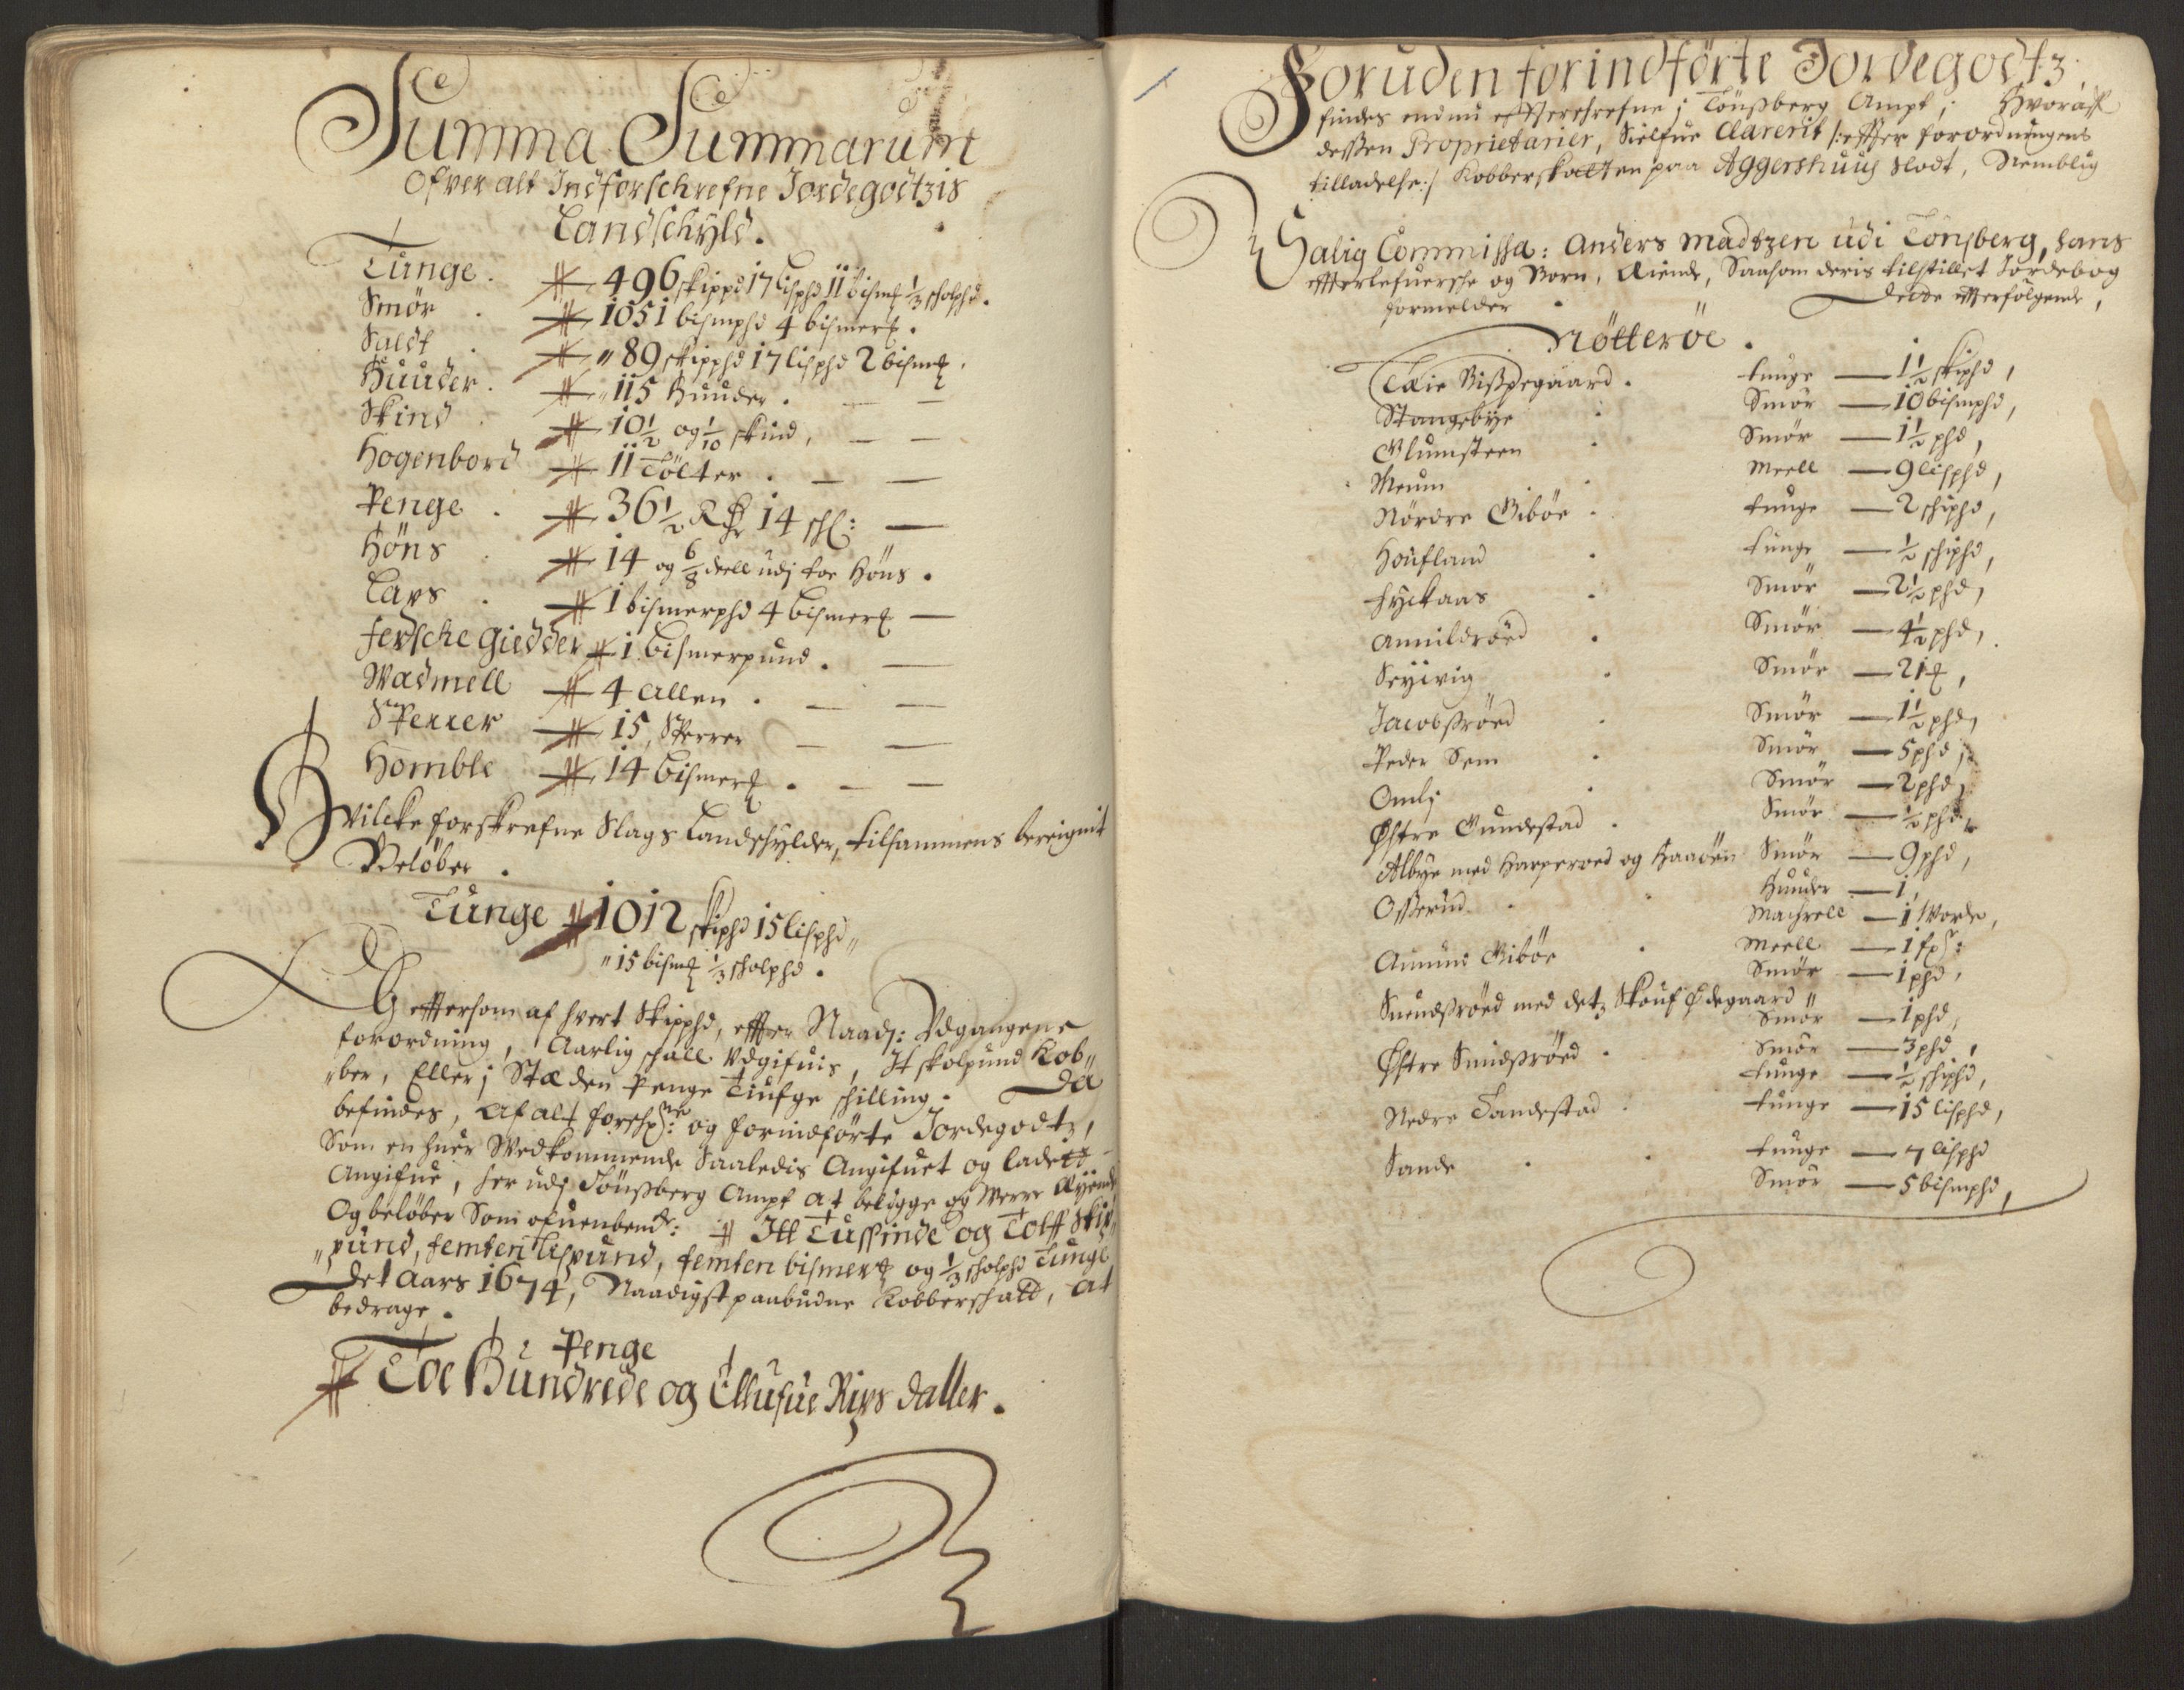 Summa Summarum
Ofver alt Indforschrefne Jordegodtzis
Landschyld.
Tunge. 496 skippd 17 lisphd 11 bismk 1/3 skolphd.
Smör. 1051 bismphd 4 bismerk.
Saldt. 89 skipphd 17 lisphd 2 bismk.
Huuder. 115 Huuder.
Skind. 10 1/2 og 1/10 skind,
Hogenbord 11 Tölter.
Penge. 36 1/2 Rdr 14 sh:
Höns. 14 og 6/8 deell udj toe Höns.
Lavs. 1 bismerphd 4 bismerk
fersche Giedder 1 bismerpund.
Wadmell 4 Allen.
Sperrer 15, Sperrer
Homble 14 bismerk.
Hvilcke forskrefne Slags Landschylder, tilsammens bereignit
Beløber.
Tunge 1012 skiphd 15 lisphd
15 bismk 1/3 skolphd.
Og efftersom af hvert Skipphd, effter Naads: Udgangene
forordning, Aarlig schall Udgifuis, It skolpund Kob-
ber, Eller j Stæden Penge Tiufge schilling. Da
befindes, Af alt forsch: og forindførte Jordegodtz,
Som en huer Wedkommende Saaledis Angifuet og ladett
Angifue, her udj Tönsberg Ampt at beligge og Were Eyende
Og beløber Som ofuenbemt: Itt Tussinde og Tolff Skip-
pund, femten Lispund, femten bismerk og 1/3 skolphd Tunge
Det Aars 1674, Naadigst paabudne Kobberschatt, At
bedrage.
Penge
Toe Hundrede og Ellufue Rixs daller.
Foruden forindförte Jordegodtz
findes endnu effterschrefne j Tönsberg Ampt, Hvoraff
dessen Proprietarier, Sielfue Clarerit /: effter forordningens
tilladelse:/ Kobberskatten paa Aggershuus Slodt, Nemblig
Salig Commissa: Anders Madtzen udi Tönsberg, hans
effterlefuersche og Born, Eiende, Saasom deris tilstillet Jordebog
formelder Dette effterfølgende,
Nötteröe.
Teie Bispegaard. tunge 1 1/2 skiphd,
Stangebye Smör 10 bismphd,
Glumsteen Smör 1 1/2 phd,
Meum Meell 9 lisphd,
Nördre Gibøe tunge 2 schiphd,
Houfland tunge 1/2 schiphd,
Hyckaas Smör 2 1/2 phd,
Annildröed Smör 4 1/2 phd,
Seyvig Smör 21 k,
Jacobsröed Smör 1 1/2 phd,
Peder Sem Smör 5 phd,
Omli Smör 2 phd,
Østre Gundestad Smör 1/2 phd,
Albye med Harperoed og Haaöen Smör 9 phd,
Osserud Huuder 1,
Machrell 1 Worde,
Aumund Gibøe Meell 1 fr:
Smör 1 phd,
Suendsröed med detz Skouf Ødegaard
Smör 1 phd,
Østre Smidsröed Smör 3 phd,
tunge 1/2 schiphd,
Nedre Sandestad tunge 15 lisphd,
Sande tunge 7 lisphd
Smör 5 bismphd,